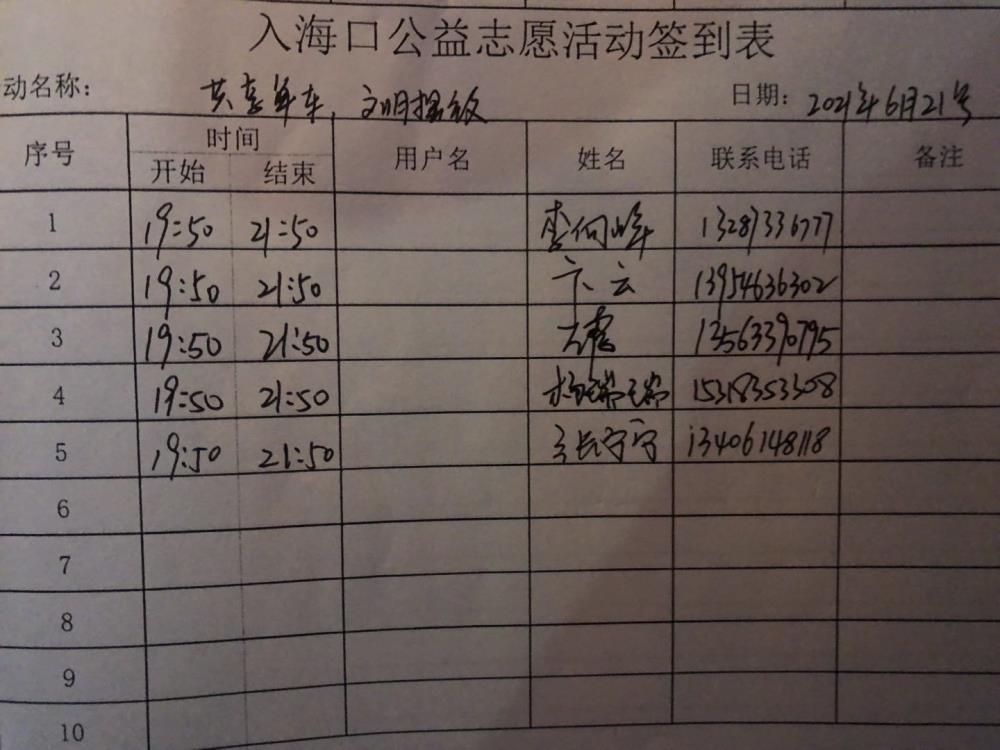 入海口公益志愿活动签到表
动名称： 共享单车，文明摆放 日期： 2021年6月21号
序号 时间 用户名 姓名 联系电话 备注
开始 结束
1 19:50 21:50 李向峰 13287336777
2 19:50 21:50 卞云 13954636302
3 19:50 21:50 13563390795
4 19:50 21:50 杨瑞瑞 15318353308
5 19:50 21:50 宁宁 13406148118
6
7
8
9
10